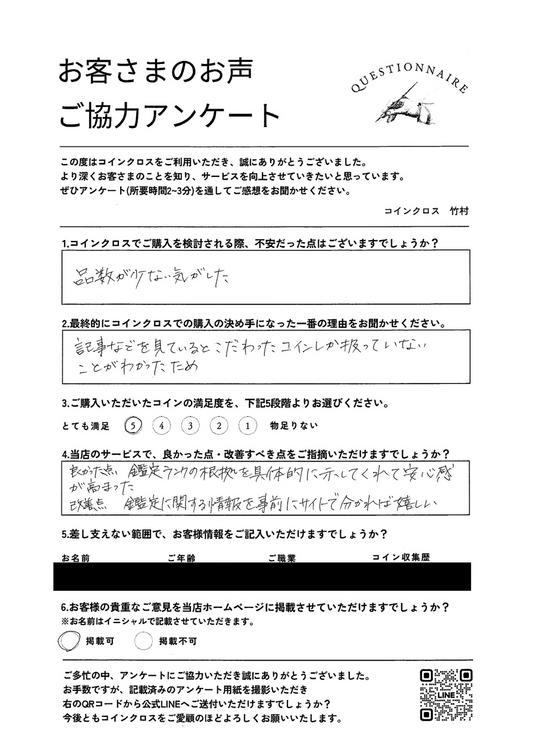 お客さまのお声
ご協力アンケート
QUESTIONNAIRE
この度はコインクロスをご利用いただき、誠にありがとうございました。
より深くお客さまのことを知り、サービスを向上させていきたいと思っています。
ぜひアンケート(所要時間2~3分)を通してご感想をお聞かせください。
コインクロス 竹村
1.コインクロスでご購入を検討される際、不安だった点はございますでしょうか？
品数が少ない気がした
2.最終的にコインクロスでの購入の決め手になった一番の理由をお聞かせください。
記事などを見ているとこだわったコインしか扱っていない
ことがわかったため
3.ご購入いただいたコインの満足度を、下記5段階よりお選びください。
とても満足 5 4 3 2 1 物足りない
4.当店のサービスで、良かった点・改善すべき点をご指摘いただけますでしょうか？
良かった点 鑑定ランクの根拠を具体的に示してくれて安心感
が高まった
改善点 鑑定に関する情報を事前にサイトで分かれば嬉しい
5.差し支えない範囲で、お客様情報をご記入いただけますでしょうか？
お名前 ご年齢 ご職業 コイン収集歴
6.お客様の貴重なご意見を当店ホームページに掲載させていただけますでしょうか？
※お名前はイニシャルで記載させていただきます。
掲載可 掲載不可
ご多忙の中、アンケートにご協力いただき誠にありがとうございました。
お手数ですが、記載済みのアンケート用紙を撮影いただき
右のQRコードから公式LINEへご送付いただけますでしょうか？
今後ともコインクロスをご愛顧のほどよろしくお願いいたします。
LINE